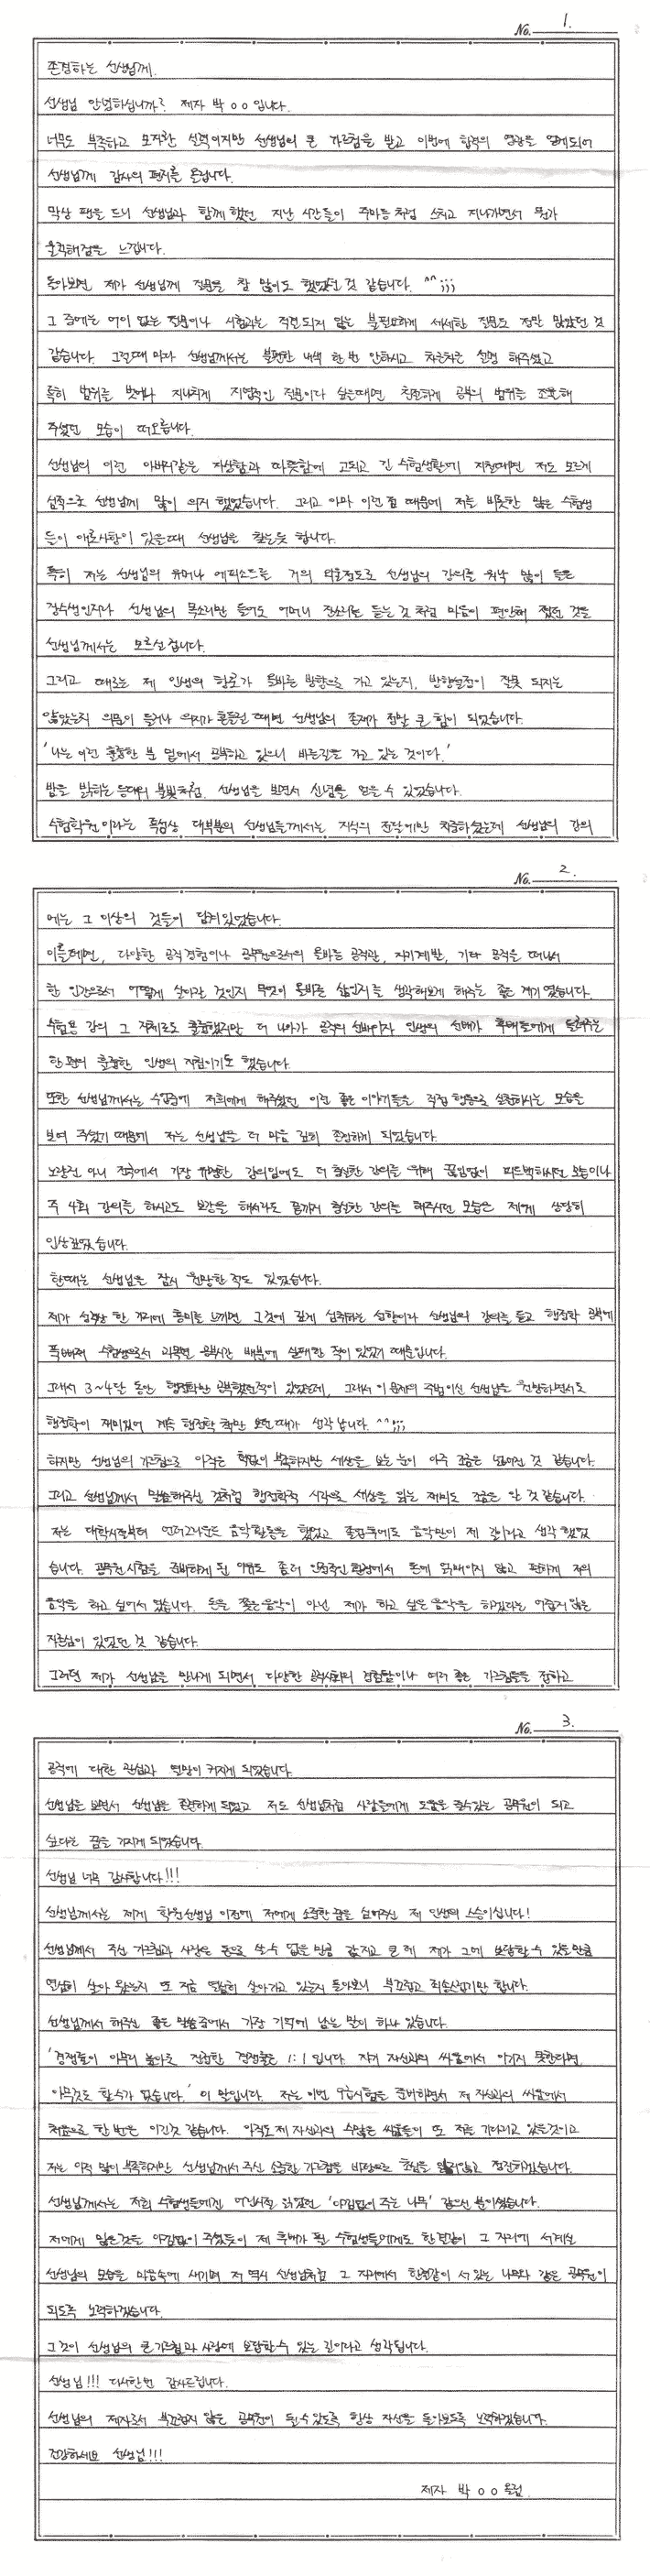 No. 1.
존경하는 선생님께.
선생님 안녕하십니까? 제자 박 ○○ 입니다.
너무도 부족하고 모자란 실력이지만 선생님의 큰 가르침을 받고 이번에 합격의 영광을 얻게되어
선생님께 감사의 편지를 올립니다.
막상 펜을 드니 선생님과 함께 했던 지난 시간들이 주마등처럼 스치고 지나가면서 뭔가
울컥해짐을 느낍니다.
돌아보면 제가 선생님께 질문을 참 많이도 했었던 것 같습니다. ^^;;;
그 중에는 어이 없는 질문이나 시험과는 직결되지 않는 불필요하게 세세한 질문도 정말 많았던 것
같습니다. 그럴때 마다 선생님께서는 불편한 내색 한 번 안하시고 차근차근 설명 해주셨고
특히 범위를 벗어나 지나치게 지엽적인 질문이다 싶을때면 친절하게 공부의 범위를 조율해
주셨던 모습이 떠오릅니다.
선생님의 이런 아버지같은 자상함과 따뜻함에 고되고 긴 수험생활에 지칠때면 저도 모르게
심적으로 선생님께 많이 의지 했었습니다. 그리고 아마 이런 점 때문에 저를 비롯한 많은 수험생
들이 애로사항이 있을때 선생님을 찾는듯 합니다.
특히 저는 선생님의 유머나 에피소드를 거의 외울정도로 선생님의 강의를 워낙 많이 들은
장수생인지라 선생님의 목소리만 들어도 어머니 잔소리를 듣는 것 처럼 마음이 편안해 졌던 것을
선생님께서는 모르실 겁니다.
그리고 때로는 제 인생의 항로가 올바른 방향으로 가고 있는지, 방향설정이 잘못 되지는
않았는지 의문이 들거나 의지가 흔들릴 때면 선생님의 존재가 정말 큰 힘이 되었습니다.
'나는 이런 훌륭한 분 밑에서 공부하고 있으니 바른길을 가고 있는 것이다.'
밤을 밝히는 등대의 불빛처럼, 선생님을 보면서 신념을 얻을 수 있었습니다.
수험학원 이라는 특성상 대부분의 선생님들께서는 지식의 전달에만 치중하셨는데 선생님의 강의
No. 2.
에는 그 이상의 것들이 담겨있었습니다.
이를테면, 다양한 공직경험이나 공무원으로서의 올바른 공직관, 자기계발, 기타 공직을 떠나서
한 인간으로서 어떻게 살아갈 것인지 무엇이 올바른 삶인지를 생각해보게 해주는 좋은 계기였습니다.
수험용 강의 그 자체로도 훌륭했지만 더 나아가 공직의 선배이자 인생의 선배가 후배들에게 들려주는
한편의 훌륭한 인생의 지침이기도 했습니다.
또한 선생님께서는 수업중에 저희에게 해주셨던 이런 좋은 이야기들을 직접 행동으로 실천하시는 모습을
보여 주셨기 때문에 저는 선생님을 더 마음 깊이 존경하게 되었습니다.
노량진 아니 전국에서 가장 유명한 강의임에도 더 충실한 강의를 위해 끊임없이 피드백하시던 모습이나
주 4회 강의를 하시고도 보강을 해서라도 끝까지 충실한 강의를 해주시던 모습은 제게 상당히
인상깊었습니다.
한때는 선생님을 잠시 원망한 적도 있었습니다.
제가 성격상 한 가지에 흥미를 느끼면 그것에 깊게 심취하는 성향이라 선생님의 강의를 듣고 행정학 공부에
푹빠져 수험생으로서 과목별 공부시간 배분에 실패한 적이 있었기 때문입니다.
그래서 3~4달 동안 행정학만 공부했던적이 있었는데, 그래서 이 문제의 주범이신 선생님을 원망하면서도
행정학이 재미있어 계속 행정학 책만 보던때가 생각납니다. ^^;;;
하지만 선생님의 가르침으로 아직은 학업이 부족하지만 세상을 보는 눈이 아주 조금은 넓어진 것 같습니다.
그리고 선생님께서 말씀해주신 것처럼 행정학적 시각으로 세상을 읽는 재미도 조금은 안 것 같습니다.
저는 대학시절부터 언더그라운드 음악활동을 했었고 졸업후에도 음악만이 제 길이라고 생각 했었
습니다. 공무원 시험을 준비하게 된 이유도 좀더 안정적인 환경에서 돈에 얽매이지 않고 편하게 저의
음악을 하고 싶어서 였습니다. 돈을 쫓는 음악이 아닌 제가 하고 싶은 음악을 하겠다는 어줍지 않은
자존심이 있었던 것 같습니다.
그러던 제가 선생님을 만나게 되면서 다양한 공직사회의 경험담이나 여러 좋은 가르침들을 접하고
No. 3.
공직에 대한 관심과 열망이 커지게 되었습니다.
선생님을 보면서 선생님을 존경하게 되었고 저도 선생님처럼 사람들에게 도움을 줄수있는 공무원이 되고
싶다는 꿈을 가지게 되었습니다.
선생님 너무 감사합니다!!!
선생님께서는 제게 학원선생님 이전에 저에게 소중한 꿈을 심어주신 제 인생의 스승이십니다!
선생님께서 주신 가르침과 사랑은 돈으로 살 수 없을 만큼 값지고 큰 데 제가 그에 보답할 수 있을만큼
열심히 살아 왔는지 또 지금 열심히 살아가고 있는지 돌아보니 부끄럽고 죄송스럽기만 합니다.
선생님께서 해주신 좋은 말씀중에서 가장 기억에 남는 말이 하나 있습니다.
'경쟁률이 아무리 높아도 진정한 경쟁률은 1:1 입니다. 자기 자신과의 싸움에서 이기지 못한다면
아무것도 할수가 없습니다.' 이 말입니다. 저는 이번 시험을 준비하면서 제 자신과의 싸움에서
처음으로 한 번은 이긴것 같습니다. 아직도 제 자신과의 수많은 싸움들이 또 저를 기다리고 있을것이고
저는 아직 많이 부족하지만 선생님께서 주신 소중한 가르침을 바탕으로 초심을 잃지않고 정진하겠습니다.
선생님께서는 저희 수험생들에겐 어린시절 읽었던 '아낌없이 주는 나무' 같으신 분이셨습니다.
저에게 많은것을 아낌없이 주셨듯이 제 후배가 될 수험생들에게도 한결같이 그 자리에 서계실
선생님의 모습을 마음속에 새기며 저 역시 선생님처럼 그 자리에서 한결같이 서 있는 나무와 같은 공무원이
되도록 노력하겠습니다.
그것이 선생님의 큰 가르침과 사랑에 보답할수 있는 길이라고 생각됩니다.
선생님!!! 다시한번 감사드립니다.
선생님의 제자로서 부끄럽지 않은 공무원이 될수 있도록 항상 자신을 돌아보도록 노력하겠습니다.
건강하세요 선생님!!!
제자 박 ○○ 올림.